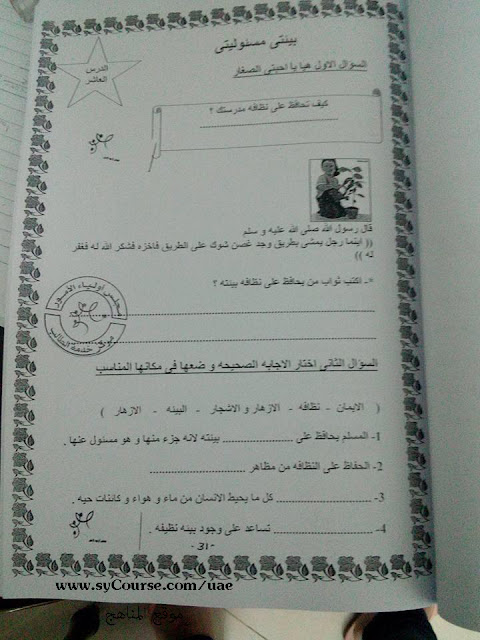 بيئتى مسئوليتى
الدرس
العاشر
السؤال الاول هيا يا احبتى الصغار
كيف تحافظ على نظافه مدرستك ؟
قال رسول الله صلى الله عليه و سلم
(( اينما رجل يمشى بطريق وجد غصن شوك على الطريق فاخره فشكر الله له فغفر
له ))
*- اكتب ثواب من يحافظ على نظافه بيئته ؟
مجلس اولياء الأمور
خدمة الطالب
السؤال الثانى اختار الاجابه الصحيحه و ضعها فى مكانها المناسب
( الايمان - نظافه - الازهار و الاشجار - البيئه - الازهار )
1- المسلم يحافظ على .................... بيئته لانه جزء منها و هو مسئول عنها .
2- الحفاظ على النظافه من مظاهر ....................
3- .................... كل ما يحيط الانسان من ماء و هواء و كائنات حيه .
4- .................... تساعد على وجود بيئه نظيفه .
-31-
www.syCourse.com/uae
موقع المناهج